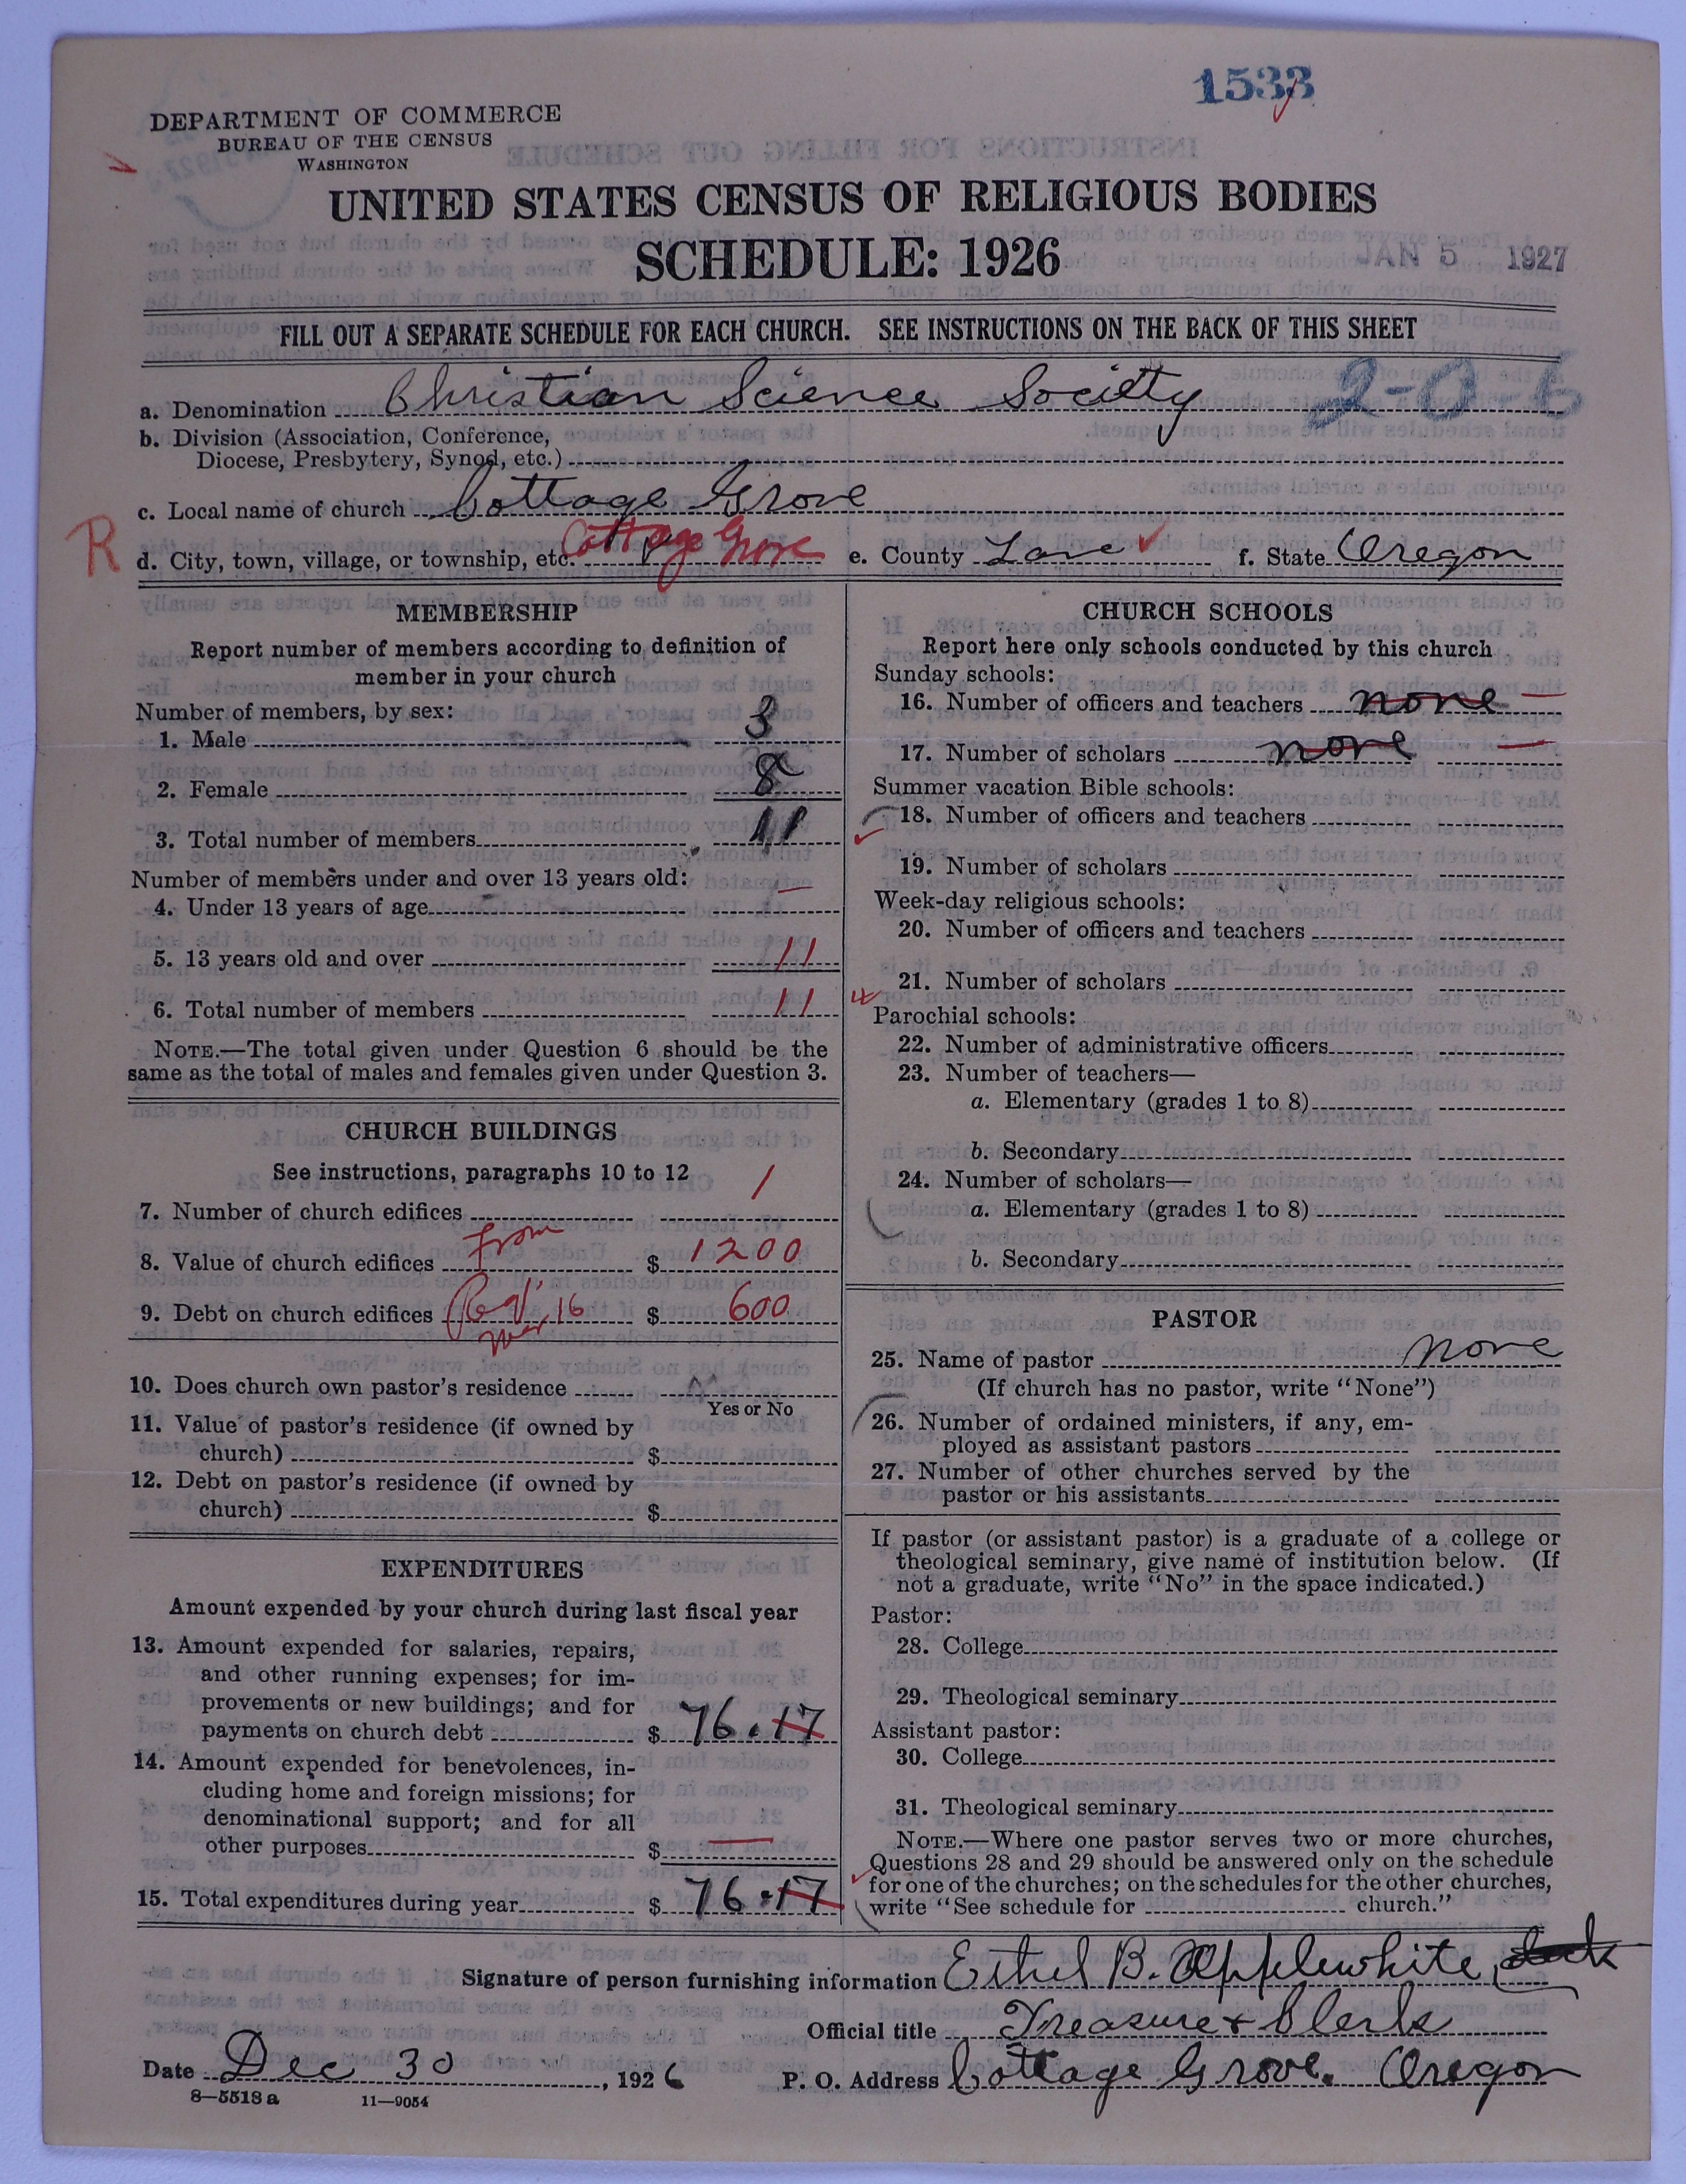 1533
DEPARTMENT OF COMMERCE
BUREAU OF THE CENSUS
WASHINGTON
UNITED STATES CENSUS OF RELIGIOUS BODIES
SCHEDULE: 1926
JAN 5 1927
FILL OUT A SEPARATE SCHEDULE FOR EACH CHURCH. SEE INSTRUCTIONS ON THE BACK OF THIS SHEET
a. Denomination Christian Science Society 2-0-6
b. Division (Association, Conference,
Diocese, Presbytery, Synod, etc.)
c. Local name of church Cottage Grove
R d. City, town, village, or township, etc. Cottage Grove e. County Lane f. State Oregon
MEMBERSHIP
Report number of members according to definition of
member in your church
Number of members, by sex:
1. Male 3
2. Female 8
3. Total number of members 11
Number of members under and over 13 years old:
4. Under 13 years of age —
5. 13 years old and over 11
6. Total number of members 11
NOTE.—The total given under Question 6 should be the
same as the total of males and females given under Question 3.
CHURCH BUILDINGS
See instructions, paragraphs 10 to 12
7. Number of church edifices 1
8. Value of church edifices from $ 1200
9. Debt on church edifices 16 $ 600
10. Does church own pastor's residence
Yes or No
11. Value of pastor's residence (if owned by
church) $
12. Debt on pastor's residence (if owned by
church) $
EXPENDITURES
Amount expended by your church during last fiscal year
13. Amount expended for salaries, repairs,
and other running expenses; for im-
provements or new buildings; and for
payments on church debt $ 76.17
14. Amount expended for benevolences, in-
cluding home and foreign missions; for
denominational support; and for all
other purposes $ —
15. Total expenditures during year $ 76.17
CHURCH SCHOOLS
Report here only schools conducted by this church
Sunday schools:
16. Number of officers and teachers none —
17. Number of scholars none —
Summer vacation Bible schools:
18. Number of officers and teachers
19. Number of scholars
Week-day religious schools:
20. Number of officers and teachers
21. Number of scholars
Parochial schools:
22. Number of administrative officers
23. Number of teachers—
a. Elementary (grades 1 to 8)
b. Secondary
24. Number of scholars—
a. Elementary (grades 1 to 8)
b. Secondary
PASTOR
25. Name of pastor none
(If church has no pastor, write "None")
26. Number of ordained ministers, if any, em-
ployed as assistant pastors
27. Number of other churches served by the
pastor or his assistants
If pastor (or assistant pastor) is a graduate of a college or
theological seminary, give name of institution below. (If
not a graduate, write "No" in the space indicated.)
Pastor:
28. College
29. Theological seminary
Assistant pastor:
30. College
31. Theological seminary
NOTE.—Where one pastor serves two or more churches,
Questions 28 and 29 should be answered only on the schedule
for one of the churches; on the schedules for the other churches,
write "See schedule for church."
Signature of person furnishing information Ethel B. Applewhite
Official title Treasure & Clerk
Date Dec 30, 1926 P. O. Address Cottage Grove. Oregon
8—5518 a 11—9054